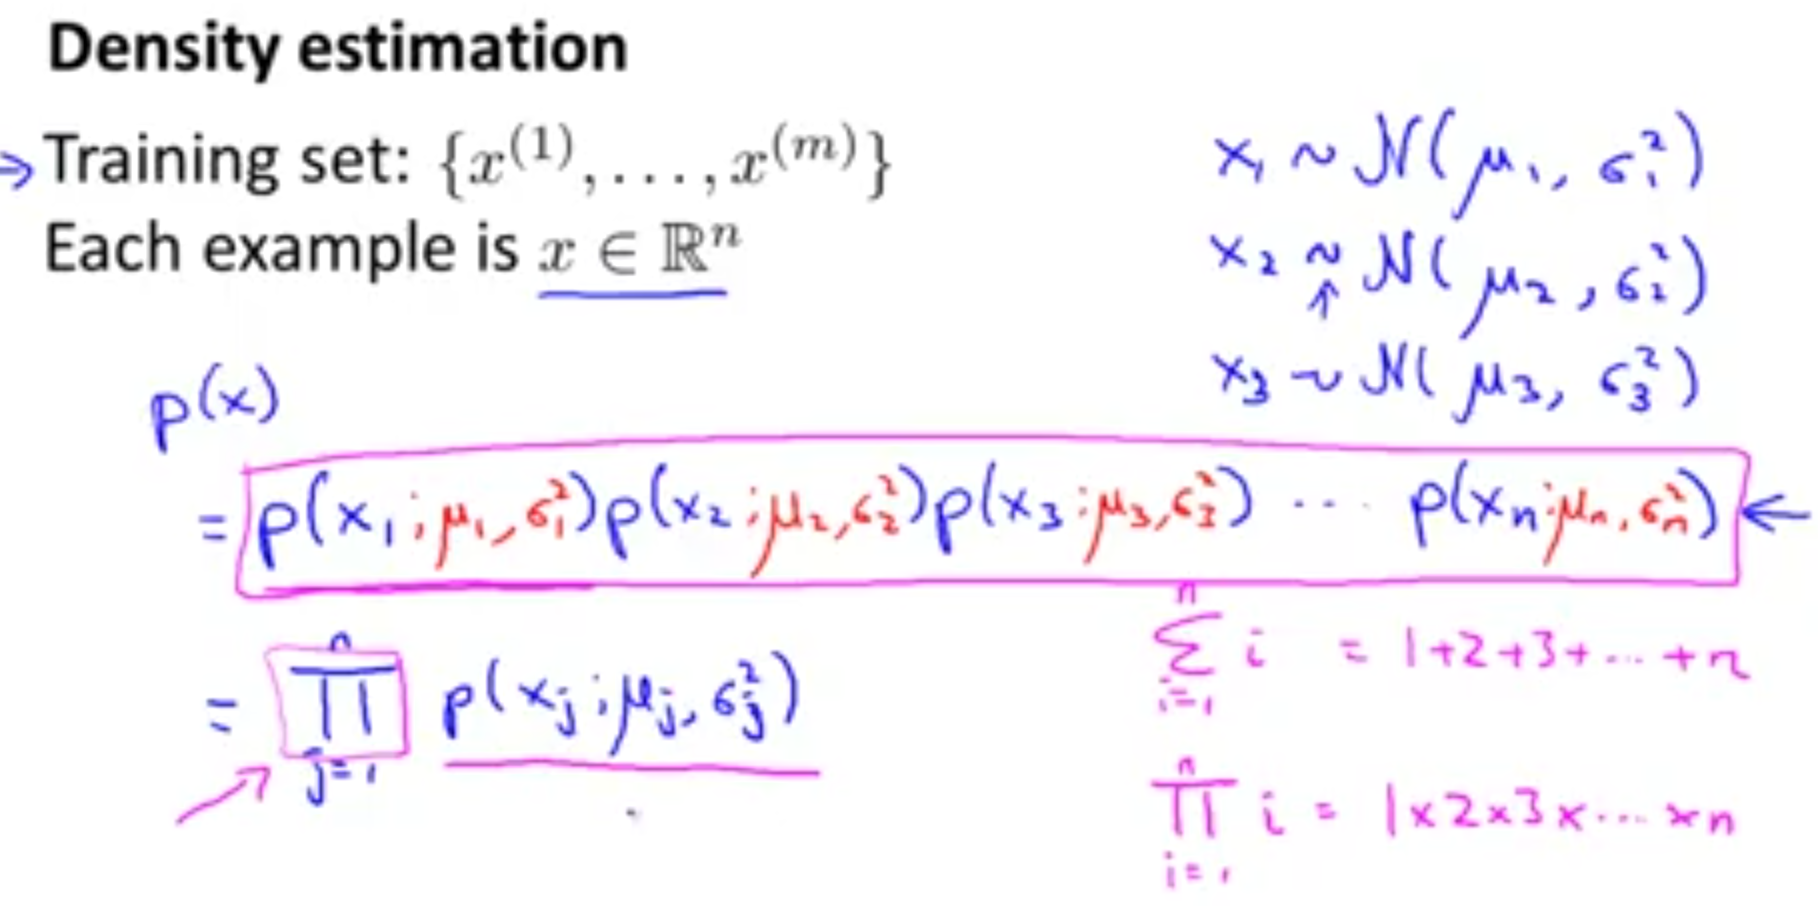 Density estimation
→ Training set: {x^(1), ..., x^(m)}
Each example is x ∈ ℝ^n
x₁ ~ N(μ₁, σ₁²)
x₂ ~ N(μ₂, σ₂²)
↑
x₃ ~ N(μ₃, σ₃²)
p(x)
= p(x₁; μ₁, σ₁²) p(x₂; μ₂, σ₂²) p(x₃; μ₃, σ₃²) ... p(xₙ; μₙ, σₙ²) ←
= ∏_{j=1}^{n} p(x_j; μ_j, σ_j²)
∑_{i=1}^{n} i = 1+2+3+...+n
∏_{i=1}^{n} i = 1×2×3×...×n